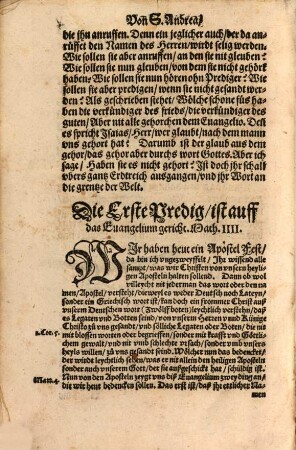 Von S. Andrea/
die jhn anruffen. Denn ein jeglicher auch/ der da an-
rüffet den Namen des Herren/ wirdt selig werden.
Wie sollen sie aber anruffen/ an den sie nit gleuben?
Wie sollen sie nun gleuben/ von dem sie nicht gehört
haben? Wie sollen sie nun hören ohn Prediger? Wie
sollen sie aber predigen/ wenn sie nicht gesand wer-
den? Als geschrieben stehet/ Wölche schöne füß ha-
ben die verkündiger des frieds/ die verkündiger des
guten/ Aber nit alle gehorchen dem Euangelio. Deñ
es spricht Isaias/ Herr/ wer glaubt/ nach dem mann
vns gehört hat? Darumb ist der glaub auß dem
gehör/ das gehör aber durch wort Gottes. Aber ich
sage/ Haben sie es nicht gehört? Ist doch jhr schall
vbers gantz Erdtreich außgangen/ vnd jhr Wort an
die grentze der Welt.
Die Erste Predig/ ist auff
das Euangelium gericht. Math. IIII.
WIr haben heut ein Apostel Fest/
da bin ich vngezweyffelt/ Jhr wissend alle
sampt/ was wir Christen von vnsern heyli-
gen Aposteln halten sollend. Dann ob wol
villeycht nit yederman das wort oder den na-
men/ Apostel/ versteht/ dieweyl es weder Deutsch noch Lateyn/
sonder ein Griechisch wort ist/ kan doch ein frommer Christ auß
vnserem Deutschen wort (Zwölff botten) leychtlich verstehn/ daß
es Legaten vnd Botten seind/ von vnserm Herren vnnd Künige
2.Cor. 5. Christo zů vns gesandt/ vnd söliche Legaten oder Boten/ die nit
mit blossen worten oder begrewssen/ sonder mit krafft vnd Götli-
chem gewalt/ vnd nit vmb schlechte vrsach/ sonder vmb vnsers
heyls willen/ zů vns gesandt seind. Wölcher nun das bedencket/
der wirdt leychtlich sehen/ was er nit allein den heiligen Aposteln
sonder auch vnserem Gott/ der sie außgeschickt hat/ schuldig ist.
Matt. 4. Nun von den Aposteln zeygt vns diß Euangelium zwey ding an/
die wir heut bedencken sollen. Das erst ist/ daß jhr etlicher Na-
men